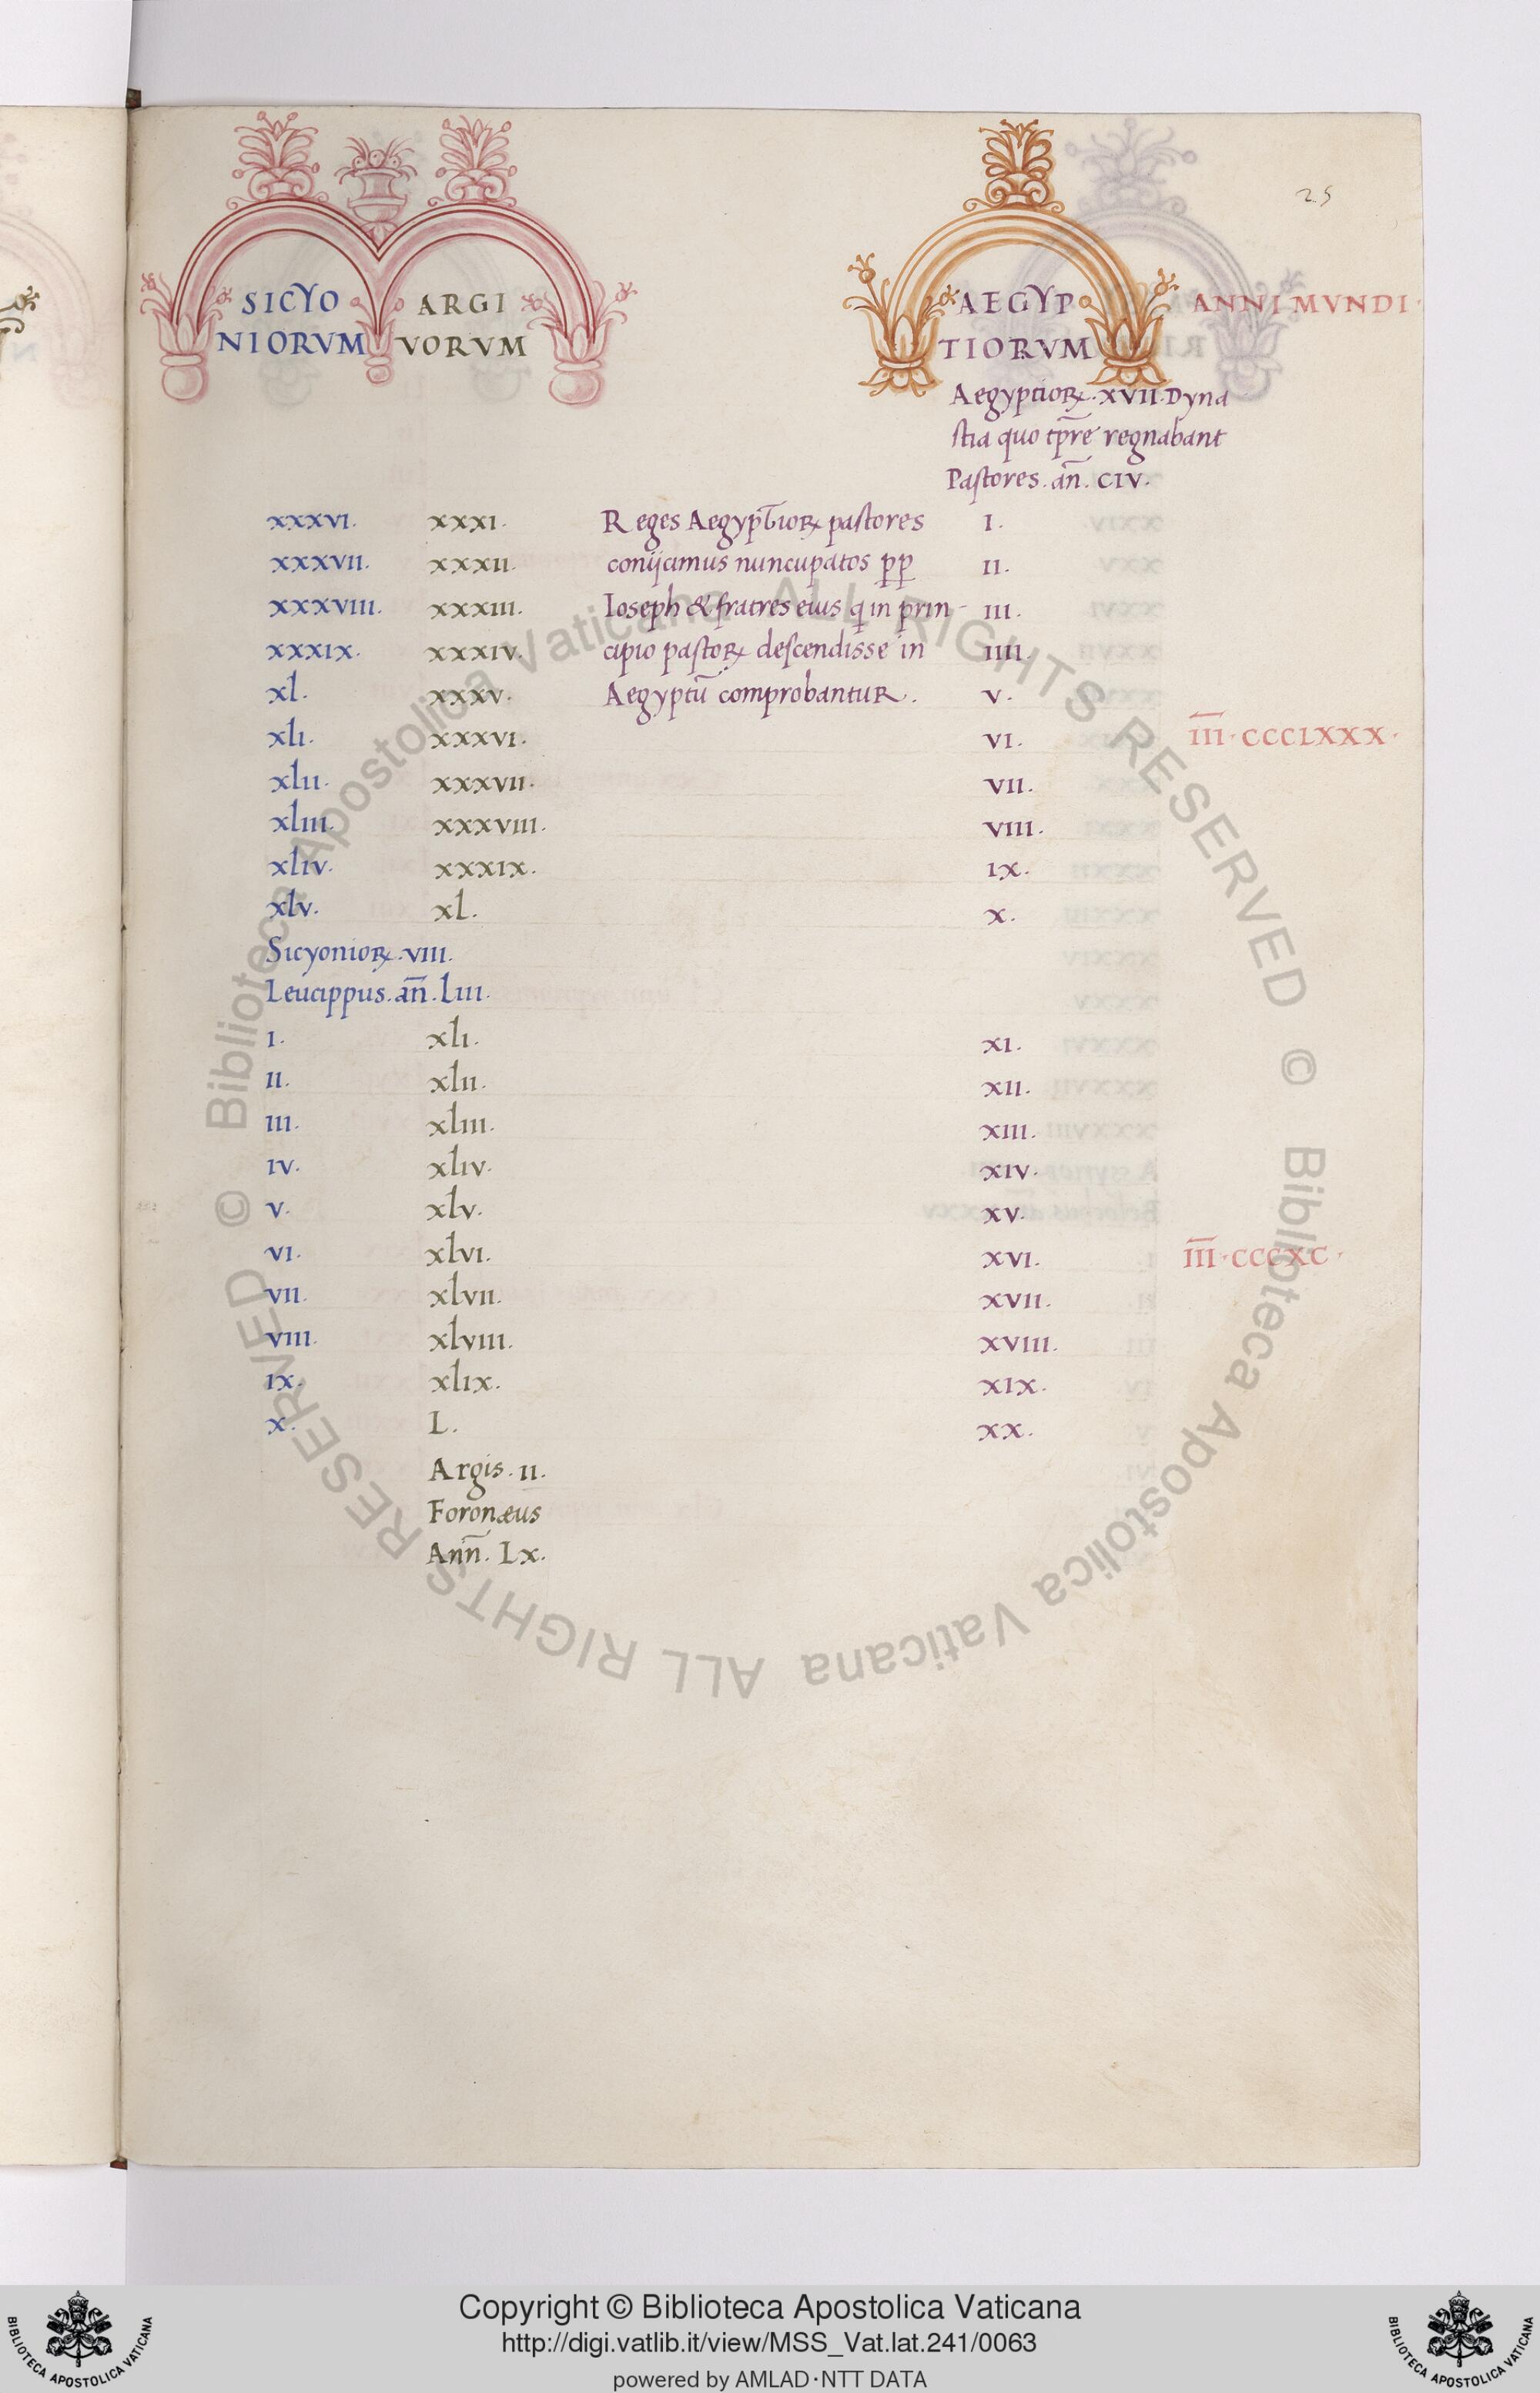 25
SICYO ARGI AEGYP ANNI MVNDI·
NIORVM VORVM TIORVM
Aegyptioꝝ·XVII·Dyna
stia quo tp̄re regnabant
Pastores. an̄. CIV.
XXXVI. XXXI. Reges Aegyptioꝝ pastores I.
XXXVII. XXXII. conijcimus nuncupatos ꝓꝑ II.
XXXVIII. XXXIII. Ioseph & fratres eius q in prin- III.
XXXIX. XXXIV. cipio pastoꝝ descendisse in IIII.
xl. XXXV. Aegyptū comprobantur. V.
xlI. XXXVI. VI. I̅I̅I̅·CCCLXXX·
xlII. XXXVII. VII.
xlIII. XXXVIII. VIII.
xlIV. XXXIX. IX.
xlV. xl. X.
Sicyonioꝝ.VIII.
Leucippus.an̄.LIII.
I. xlI. XI.
II. xlII. XII.
III. xlIII. XIII.
IV. xlIV. XIV.
V. xlV. XV.
VI. xlVI. XVI. I̅I̅I̅·CCCXC·
VII. xlVII. XVII.
VIII. xlVIII. XVIII.
IX. xlIX. XIX.
X. L. XX.
Argis.II.
Foronæus
Ann̄. Lx.
© Biblioteca Apostolica Vaticana ALL RIGHTS RESERVED © Biblioteca Apostolica Vaticana ALL RIGHTS RESERVED
Copyright © Biblioteca Apostolica Vaticana
http://digi.vatlib.it/view/MSS_Vat.lat.241/0063
powered by AMLAD·NTT DATA
BIBLIOTECA APOSTOLICA VATICANA
BIBLIOTECA APOSTOLICA VATICANA